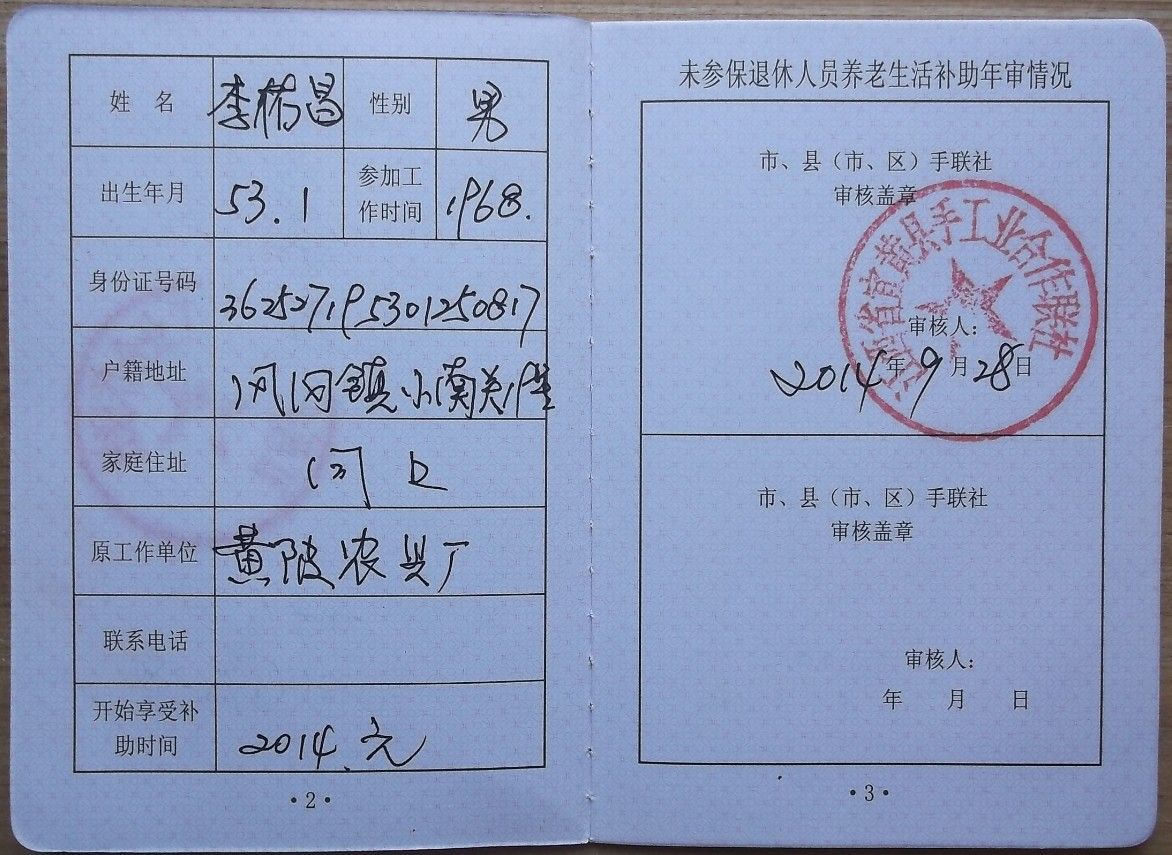 姓 名 李楠昌 性别 男
出生年月 53.1 参加工作时间 1968.
身份证号码 362527195301250817
户籍地址 凤冈镇小南关
家庭住址 同上
原工作单位 黄陂农具厂
联系电话
开始享受补助时间 2014.元
·2·
未参保退休人员养老生活补助年审情况
市、县（市、区）手联社
审核盖章
江西省宜黄县手工业合作联社
审核人：
2014年9月28日
市、县（市、区）手联社
审核盖章
审核人：
年 月 日
·3·